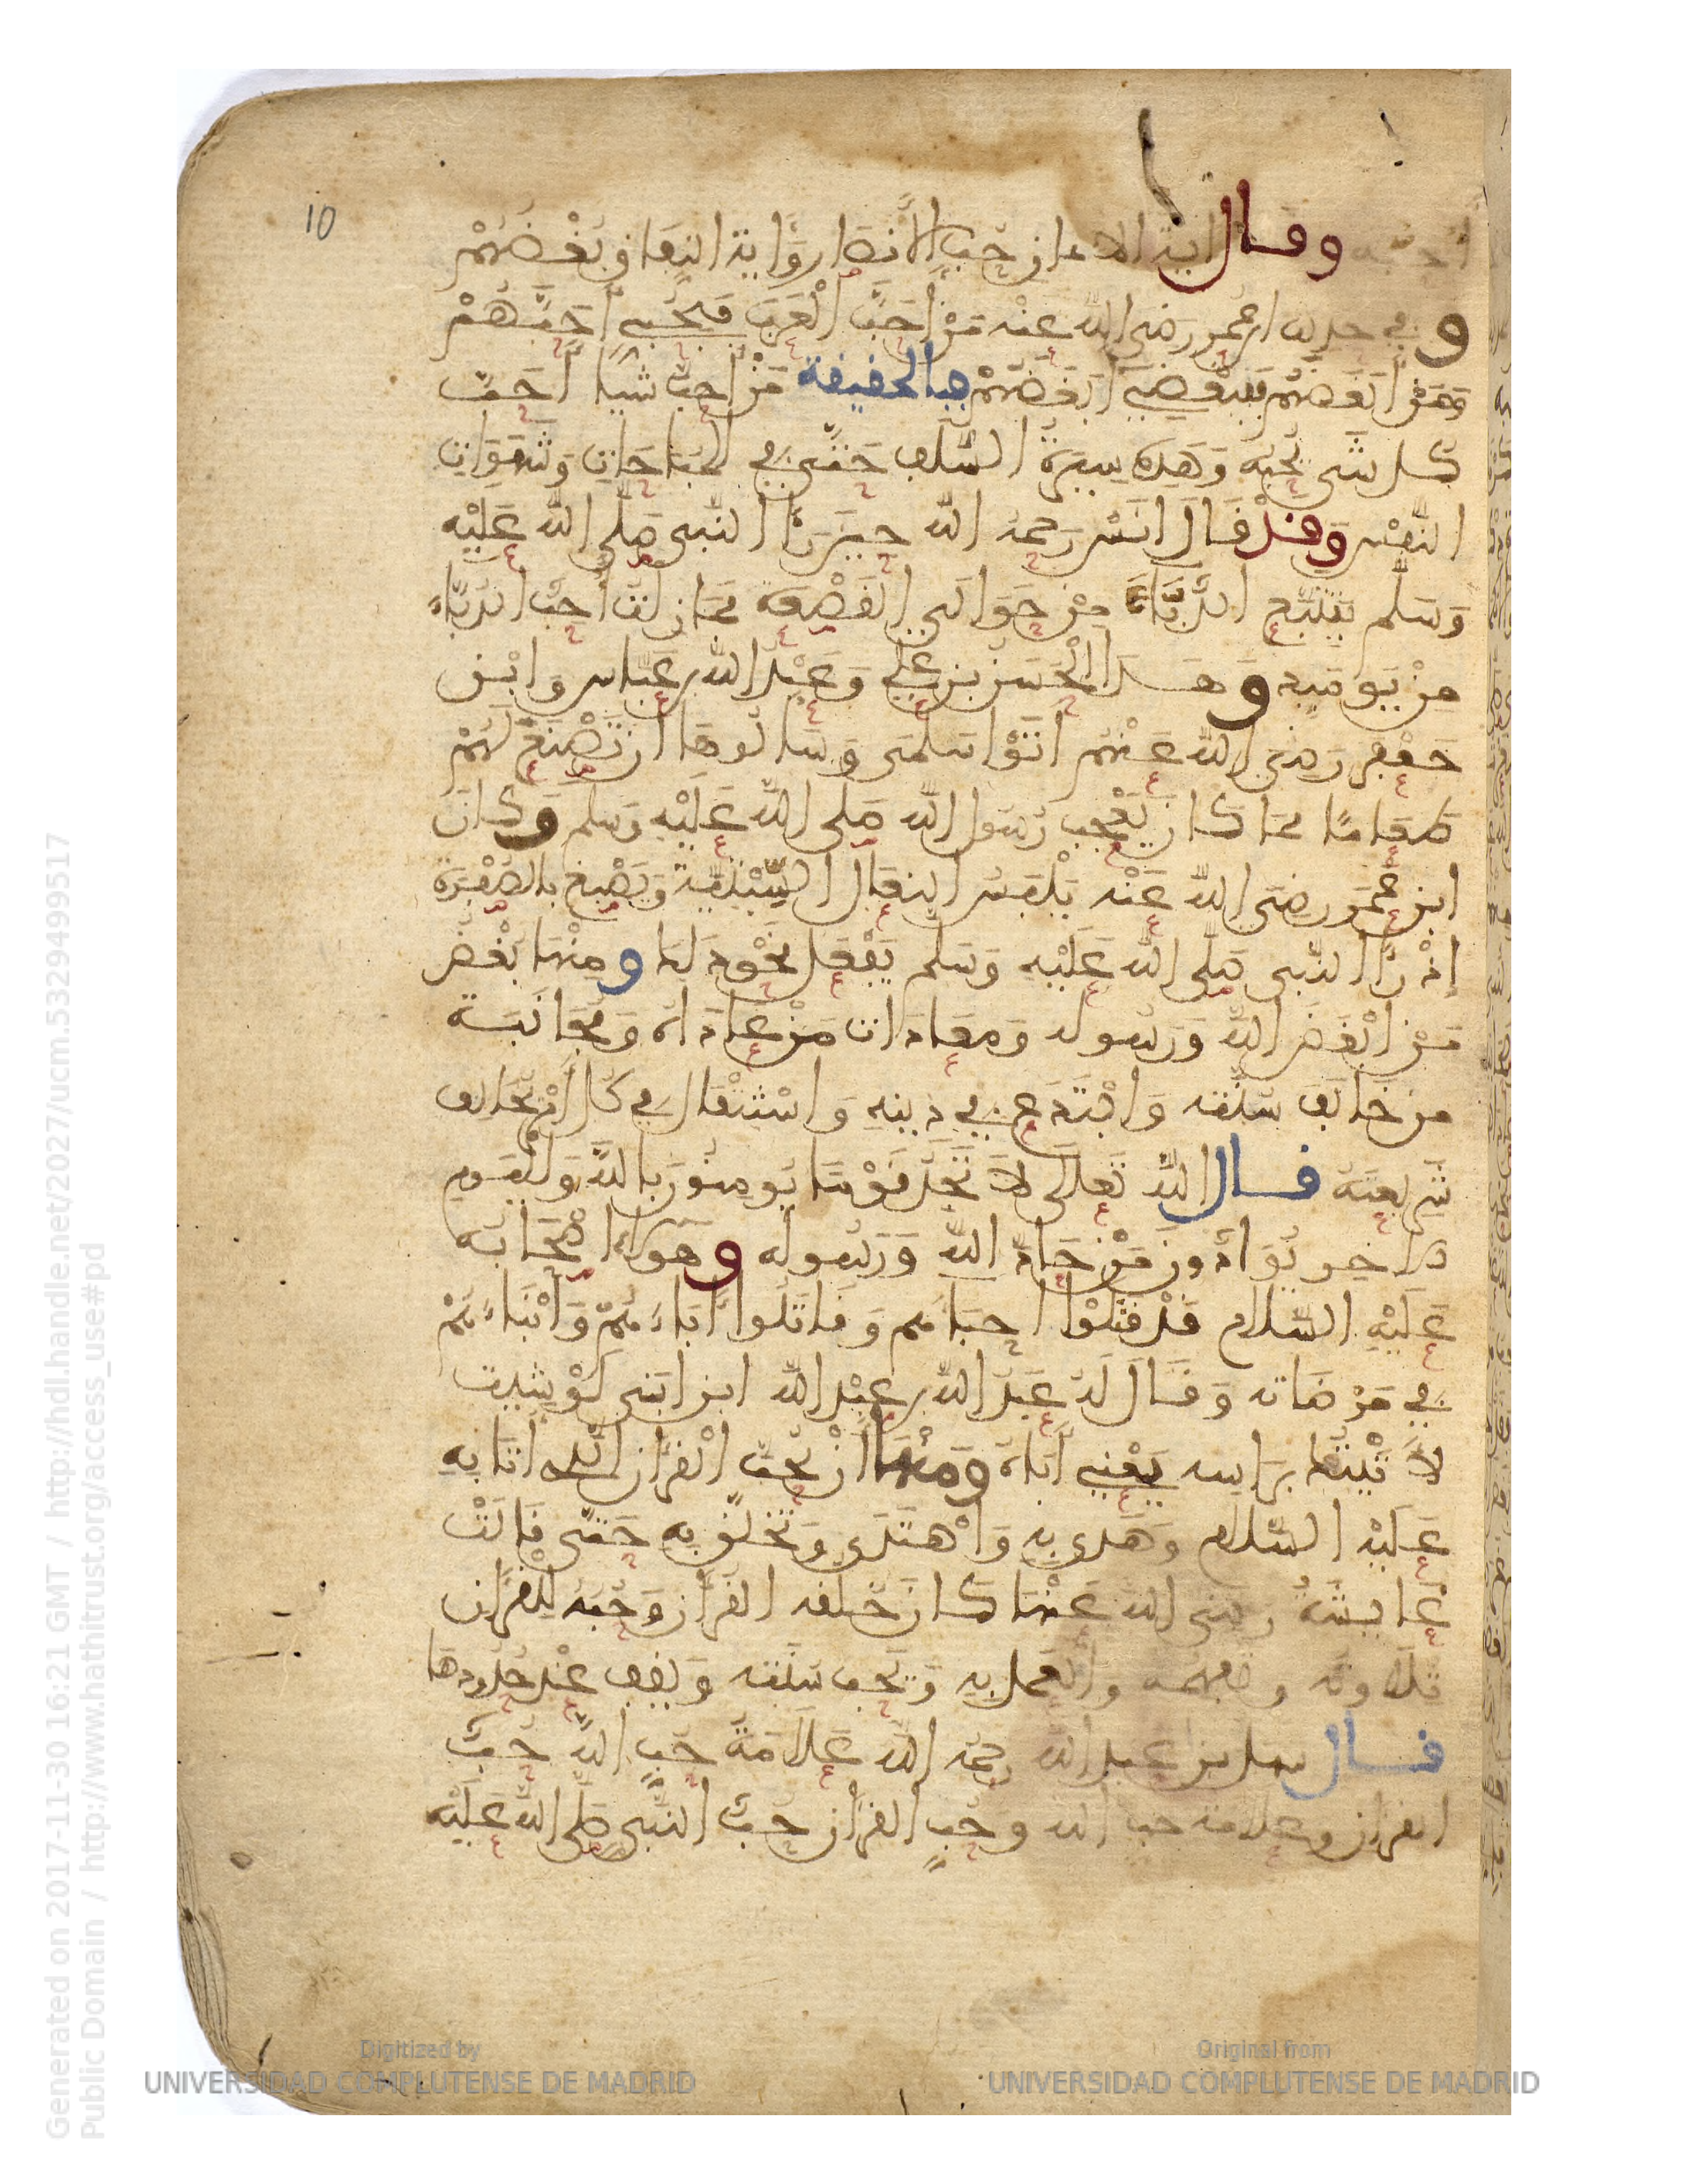 10
أحبه وقال اية الايمان حُبّ الأنصار وَاية النِفاق بُغْضُهُمْ
و في حديث ابن عُمر رضي الله عنه مَنْ أحَبَّ الْعَرَبَ فبِحُبّي أحَبَّهُمْ
وَمَنْ أبْغَضهُمْ فَبِبُغْضِي أبْغَضَهُمْ فبالحقيقة مَنْ أحبّ شيئا أحَبّ
كل شَيْ يُحِبّه وَهَذِه سِيرَةُ السَّلَف حَتَّى في المُبَاحَاتِ وَشَهَوَاتِ
النَّفْس وَقدْ قَالَ انَسْ رَحمه الله حِينَ رَأَا النَّبي صَلّى الله عَلَيْهِ
وَسَلم يَتَتَبَّع الدُّبَّاءَ مِنْ حَوَالَي القَصْعَة فما زلتُ أحِبّ الدُّبَّاءَ
مِنْ يَوْمَيِه وَهَذا الْحَسَنُ بن عَلي وَعَبْدُ الله بن عَبَّاس وَابْن
جَعْفَر رَضي الله عَنْهُمْ اتَوْا سَلْمَى وَسَالُوهَا ان تَصْنَعَ لَهُمْ
طَعَامًا مِمّا كَانَ يُعْجِب رَسُول الله صَلى الله عَلَيْهِ وَسَلم وَكانَ
ابن عُمَر رضي الله عَنْه يَلْبَسُ النِعَال السِّبْتِيّة وَيَصْبغ بِالصُفْرَة
اذْ رَأا النّبي صَلّى الله عَلَيْهِ وَسَلم يَفْعَل نَحْو ذَلِكَ وَمِنْهَا بُغْضُ
مَنْ ابْغَضَ الله وَرَسُوله وَمعَادَات مَنْ عَادَاه وَمُجَانَبَة
من خَالَفَ سُنّته وَابْتَدَع في دِينِهِ وَاسْتِثْقَال في كُلّ أمْر يُخَالِف
شَرِيعَتَهُ قال الله تَعَالَى لاَ تَجِدُ قَوْمًا يُومِنُونَ بِاللهِ وَالْيَومِ
الاخِرِ يُوَادّونَ مَنْ حَادّ اللهَ وَرَسُولَه وَهَؤلاء اصْحَابُه
عَلَيْهِ السَّلام قَدْ قَتَلُوا احِبَّاءهم وَقَاتَلُوا أبَاءَهُمْ وَأبْنَاءَهُمْ
في مَرْضَاته وَقَالَ لَهُ عَبْدُ الله بن عَبْد الله ابن ابَيّ لَوْ شِيت
لاَتَيْتُكَ بِرَاسِه يَعْنِي أبَاهُ وَمِنْهَا أنْ يُحِبّ الْقُرْآن الّذِي أتَا بِهِ
عَلَيْه السَّلام وَهَدَى بِهِ وَاهْتَدَى وَتَخَلَّق بِهِ حَتَّى قَالَتْ
عَايِشَةُ رضي الله عَنْها كَانَ خُلُقه القُرْآن وَحُبّه لِلْقُرْآن
تِلاَوتُه وتفهّمه والعَمل به وَيُحِبّ سُنَّته وَيَقِف عِنْدَ حُدُودِهَا
قال سهل بن عبد الله رحمه الله عَلاَمَةُ حُبِّ اللهِ حُبّ
القرآن وعلامة حب الله وحُبّ القُرْآن حُبّ النَّبِي صَلَّى الله عَلَيْه
Generated on 2017-11-30 16:21 GMT / http://hdl.handle.net/2027/ucm.5329499517
Public Domain / http://www.hathitrust.org/access_use#pd
Digitized by
UNIVERSIDAD COMPLUTENSE DE MADRID
Original from
UNIVERSIDAD COMPLUTENSE DE MADRID